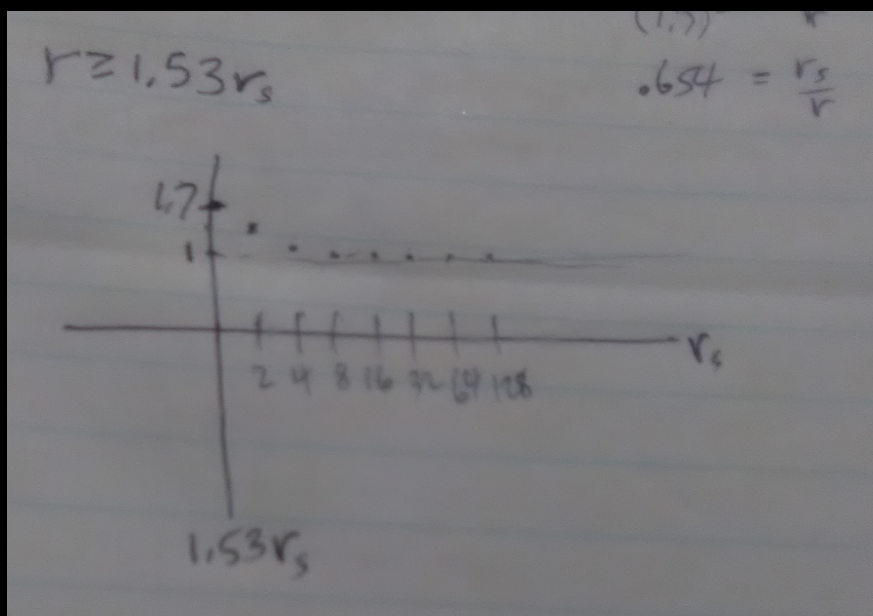 r ≥ 1.53rₛ
.654 = rₛ/r
1.7
1
rₛ
2 4 8 16 32 64 128
1.53rₛ